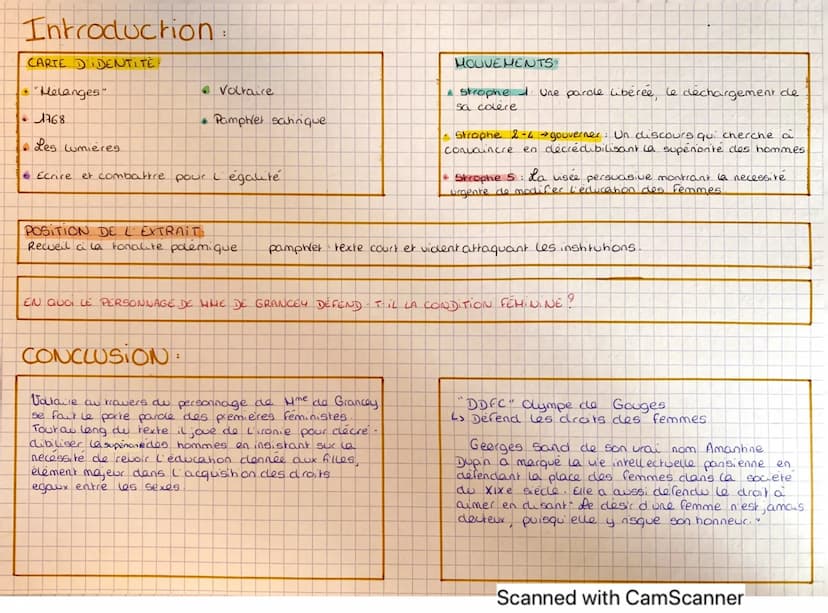 Introduction :
CARTE D'IDENTITÉ
• "Mélanges"
• Voltaire
• 1768
• Pamphlet satirique
• Les lumières
• Ecrire et combattre pour l'égalité
MOUVEMENTS
• Strophe 1 : Une parole libérée, le déchargement de
sa colère
• Strophe 2-4 → gouverner : Un discours qui cherche à
convaincre en décrédibilisant la supériorité des hommes
• Strophe 5 : La visée persuasive montrant la necessité
urgente de modifier l'éducation des femmes
POSITION DE L'EXTRAIT
Recueil à la tonalité polémique pamphlet : texte court et violent attaquant les institutions.
EN QUOI LE PERSONNAGE DE MME DE GRANCEY DÉFEND-T-IL LA CONDITION FÉMININE ?
CONCLUSION :
Voltaire au travers du personnage de Mme de Grancey
se fait le porte parole des premières féministes.
Tout au long du texte il joue de l'ironie pour décré-
dibiliser la supériorité des hommes en insistant sur la
necéssité de revoir l'éducation donnée aux filles,
élément majeur dans l'acquisition des droits
egaux entre les sexes.
"DDFC" Olympe de Gouges
↳ Défend les droits des femmes
Georges Sand de son vrai nom Amantine
Dupin a marqué la vie intellectuelle parisienne en
défendant la place des femmes dans la société
du XIXe siècle. Elle a aussi défendu le droit à
aimer en disant "Le désir d'une femme n'est jamais
douteux, puisqu'elle y risque son honneur."
Scanned with CamScanner